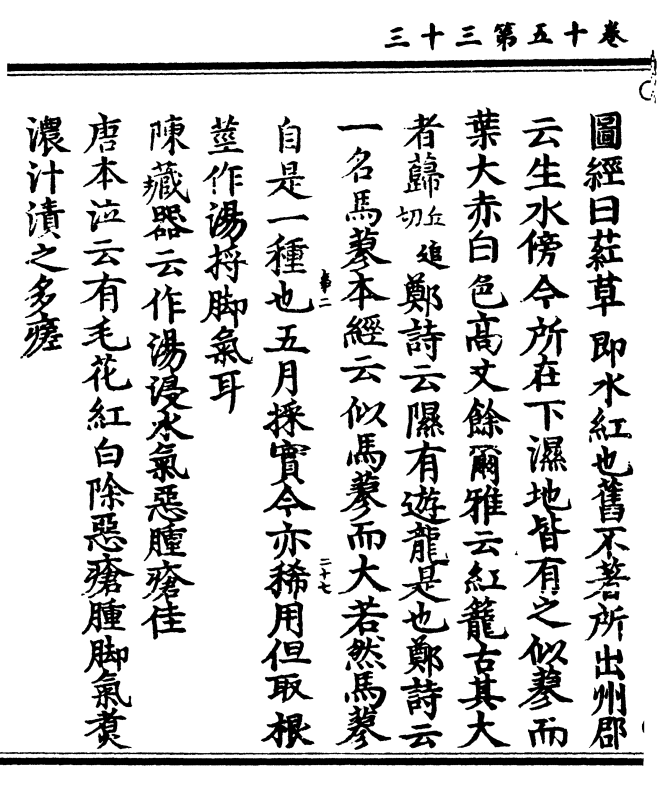 卷十五第三十三
圖經曰葒草即水紅也舊不著所出州郡
云生水傍今所在下濕地皆有之似蓼而
葉大赤白色高丈餘爾雅云紅籠古其大
者蘬丘追切鄭詩云隰有遊龍是也鄭詩云
一名馬蓼本經云似馬蓼而大若然馬蓼
自是一種也五月採實今亦稀用但取根
莖作湯捋脚氣耳
陳藏器云作湯浸水氣惡腫瘡佳
唐本泣云有毛花紅白除惡瘡腫脚氣煑
濃汁漬之多瘥
二十七